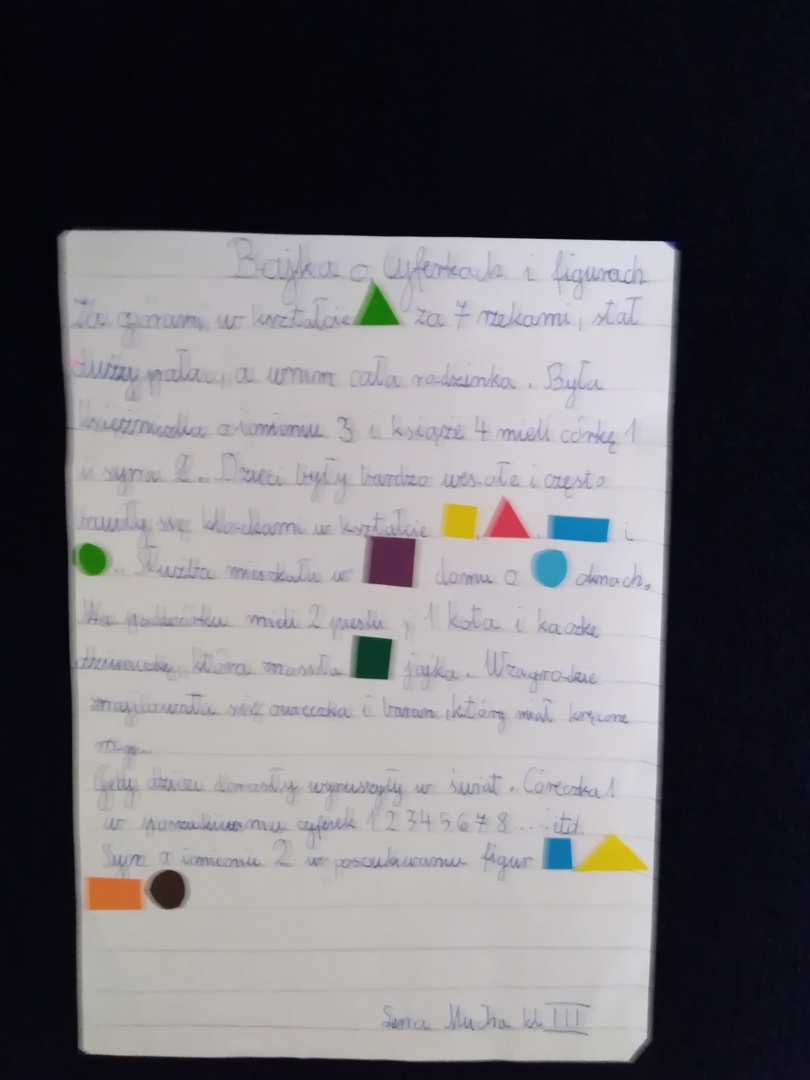 Bajka o cyferkach i figurach
Za górami w kształcie za 7 rzekami, stał
duży pałac, a w nim cała rodzinka. Była
księżniczka o imieniu 3 i książe 4 mieli córkę 1
i syna 2. Dzieci były bardzo wesołe i często
bawiły się klockami w kształcie , , i
. Służba mieszkała w domu o oknach.
Na podwórku mieli 2 pieski, 1 kota i kaczkę
dziwaczkę, która znosiła jajka. W zagrodzie
znajdowała się owieczka i baran, który miał kręcone
rogi.
Gdy dzieci dorosły wyruszyły w świat. Córeczka 1
w poszukiwaniu cyferek 1 2 3 4 5 6 7 8 .... itd.
Syn o imieniu 2 w poszukiwaniu figur
Mucha kl. III